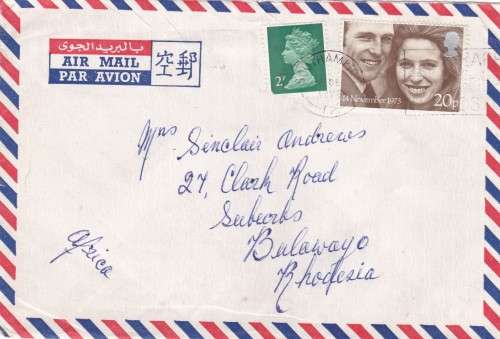 بالبريد الجوى
AIR MAIL
PAR AVION
空郵
2P
14 November 1973
20p
Mrs Sinclair Andrews
27, Clark Road
Suburbs
Bulawayo
Rhodesia
Africa